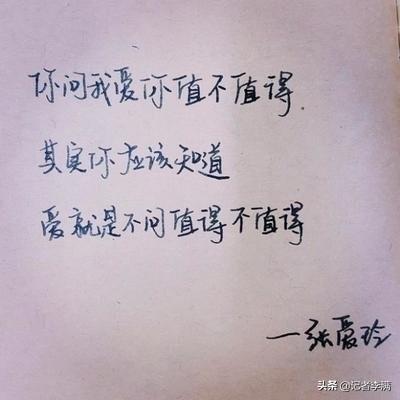 你问我爱你值不值得
其实你应该知道
爱就是不问值得不值得
一张爱玲
头条 @记者李满